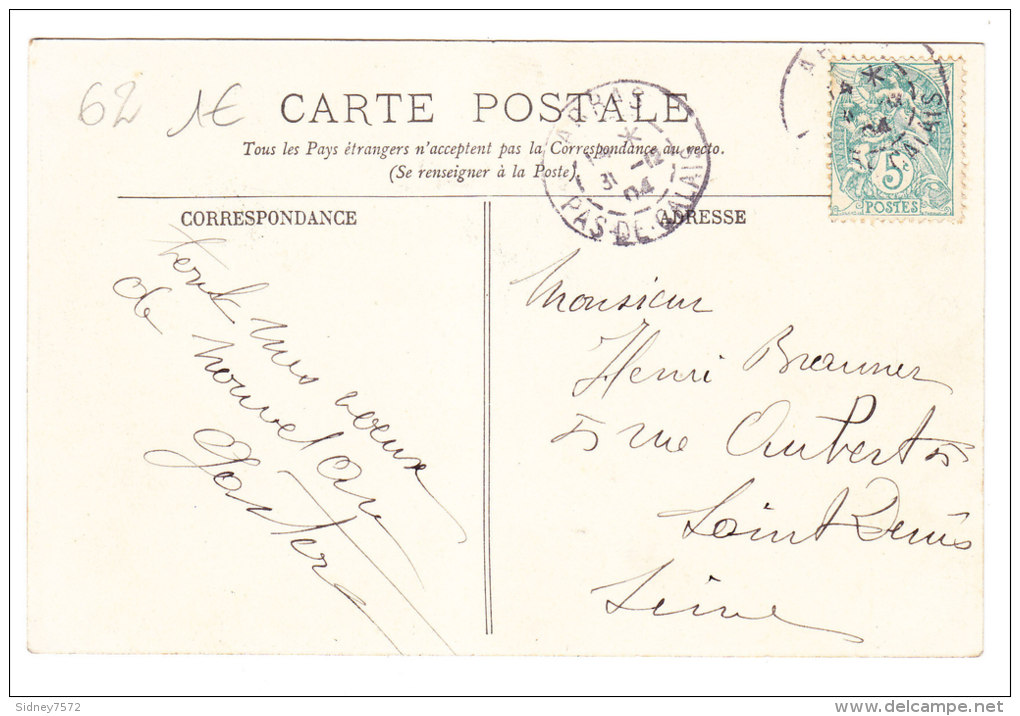 62 1€
CARTE POSTALE
Tous les Pays étrangers n'acceptent pas la Correspondance au recto.
(Se renseigner à la Poste)
ARRAS
*
31 -12
04
PAS-DE-CALAIS
5
POSTES
CORRESPONDANCE
mes voeux
de nouvel an
ADRESSE
Monsieur
Henri Brauner
5 rue Aubert 5
Saint Denis
Seine
Sidney7572
delcampe.net